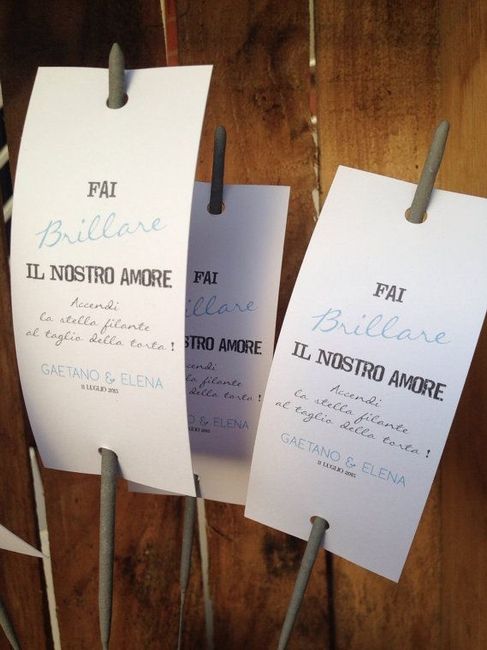 FAI
Brillare
IL NOSTRO AMORE
Accendi
la stella filante
al taglio della torta!
GAETANO & ELENA
11 LUGLIO 2015
FAI
Brillare
STRO AMORE
Accendi
stella filante
taglio della torta!
O & ELENA
LUGLIO 2015
FAI
Brillare
IL NOSTRO AMORE
Accendi
la stella filante
al taglio della torta!
GAETANO & ELENA
11 LUGLIO 2015